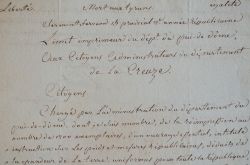 Liberté. Mort aux tyrans égalité
Clermont-ferrand 18 prairial 2e année Républicaine
Limet imprimeur du dépt. du puy-de-dôme;
Aux Citoyens administrateurs du département
de La Creuze.
Citoyens
Chargé par l'administration du département du
puy-de-dôme, dont je suis membre, de la réimpression au
nombre de exemplaires, d'un ouvrage essentiel, intitulé
instruction sur les poids et mesures républicaines, déduites de
la grandeur de la terre, uniformes pour toute la République